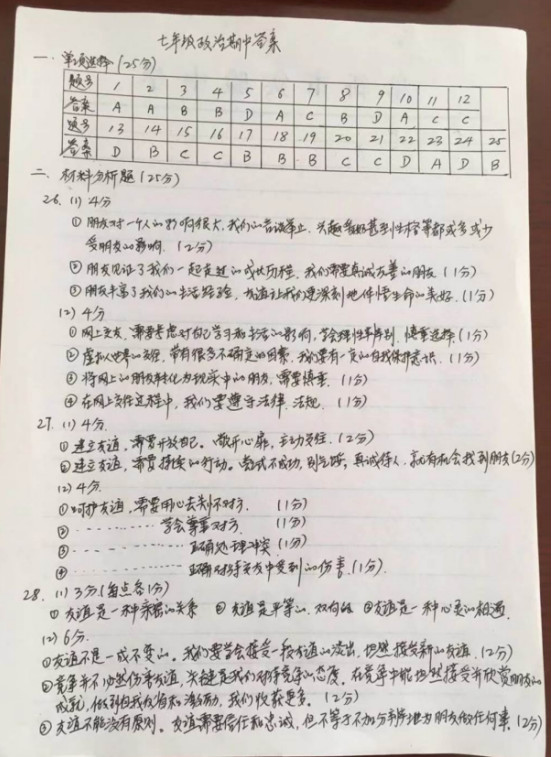 七年级政治期中答案
一. 单项选择(25分)
题号 1 2 3 4 5 6 7 8 9 10 11 12
答案 A A B B D A C B D A C C
题号 13 14 15 16 17 18 19 20 21 22 23 24 25
答案 D B C C B B B C C D A D B
二、材料分析题(25分)
26. (1) 4分
① 朋友对一个人的影响很大,我们的言谈举止、兴趣爱好甚至性格等都或多或少
受朋友的影响. (2分)
② 朋友见证了我们一起走过的成长历程, 我们需要真诚友善的朋友 (1分)
③ 朋友丰富了我们的生活经验, 友谊让我们更深刻地体悟生命的美好. (1分)
(2) 4分
① 网上交友, 需要考虑对自己学习和生活的影响, 学会理性辨别、慎重选择(1分)
② 虚拟世界的交往, 带有很多不确定的因素, 我们要有一定的自我保护意识. (1分)
③ 将网上的朋友转化为现实中的朋友, 需要慎重. (1分)
④ 在网上交往过程中, 我们要遵守法律、法规. (1分)
27. (1) 4分.
① 建立友谊, 需要开放自己。敞开心扉, 主动交往. (2分)
② 建立友谊, 需要持续的行动。尝试不成功, 别气馁, 真诚待人, 就有机会找到朋友(2分)
(2) 4分.
① 呵护友谊, 需要用心去关怀对方. (1分)
② ············ 学会尊重对方. (1分)
③ ············ 正确处理冲突. (1分)
④ ············ 正确对待交友中受到的伤害. (1分).
28. (1) 3分(每点各1分)
① 友谊是一种亲密的关系 ② 友谊是平等的、双向的 ③ 友谊是一种心灵的相遇.
(2) 6分.
① 友谊不是一成不变的。我们要学会接受一段友谊的淡出, 坦然接受新的友谊. (2分)
② 竞争并不必然伤害友谊, 关键是我们对待竞争的态度。在竞争中能坦然接受并欣赏朋友的
成就, 做到自我反省和激励, 我们收获更多. (2分)
③ 友谊不能没有原则。友谊需要信任和忠诚, 但不等于不加分辨地为朋友做任何事. (2分)